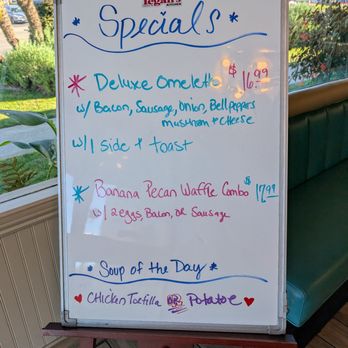 Specials
* Deluxe Omelette $16.99
w/ Bacon, Sausage, Onion, Bell peppers
mushroom + cheese
w/ 1 side + toast
* Banana Pecan Waffle Combo $17.99
w/ 2 eggs, Bacon, or Sausage
* Soup of the Day *
♥ Chicken Tortilla OR Potatoe ♥